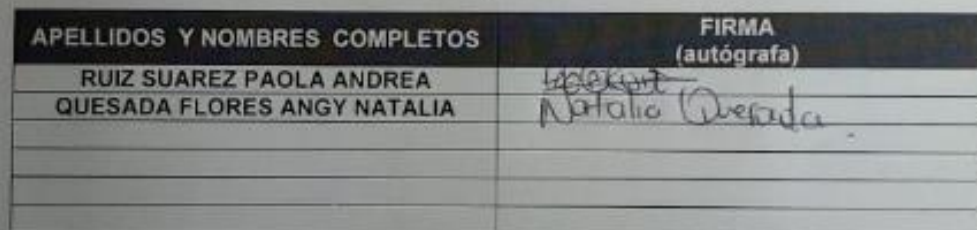 APELLIDOS Y NOMBRES COMPLETOS
FIRMA
(autógrafa)
RUIZ SUAREZ PAOLA ANDREA
QUESADA FLORES ANGY NATALIA Natalia Quesada